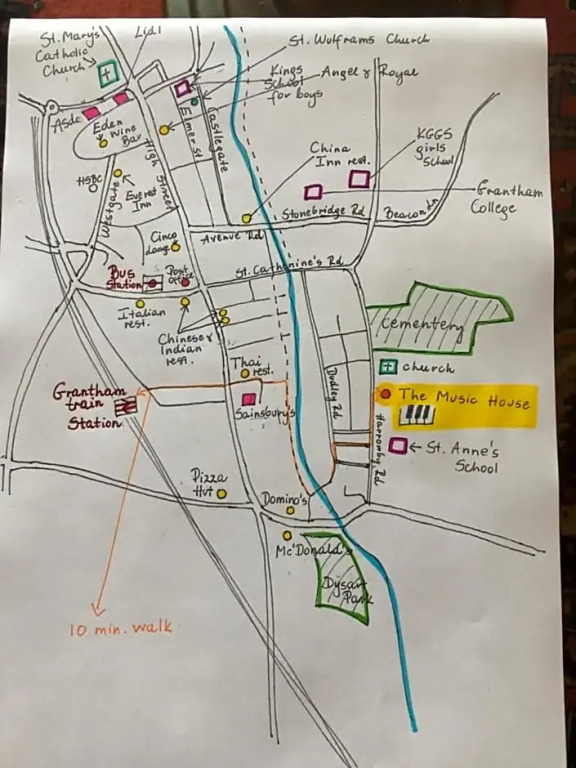 St. Mary's
Catholic
Church
Lidl
St. Wolframs Church
Kings
School
for boys
Angel & Royal
Asda
Eden
Wine
Bar
High Street
Elmer St
Castlegate
China
Inn rest.
KGGS
girls
School
HSBC
Westgate
Everest
Inn
Grantham
College
Stonebridge Rd
Beacon Ln
Cinco
Lounge
Avenue Rd
Bus
Station
Post
Office
St. Catherine's Rd
Italian
rest.
Chinese &
Indian
rest.
Cementery
Thai
rest.
Dudley Rd
church
Grantham
train
Station
Sainsbury's
The Music House
Harrowby Rd
St. Anne's
School
Pizza
Hut
Domino's
Mc'Donald's
Dysart
Park
10 min. walk